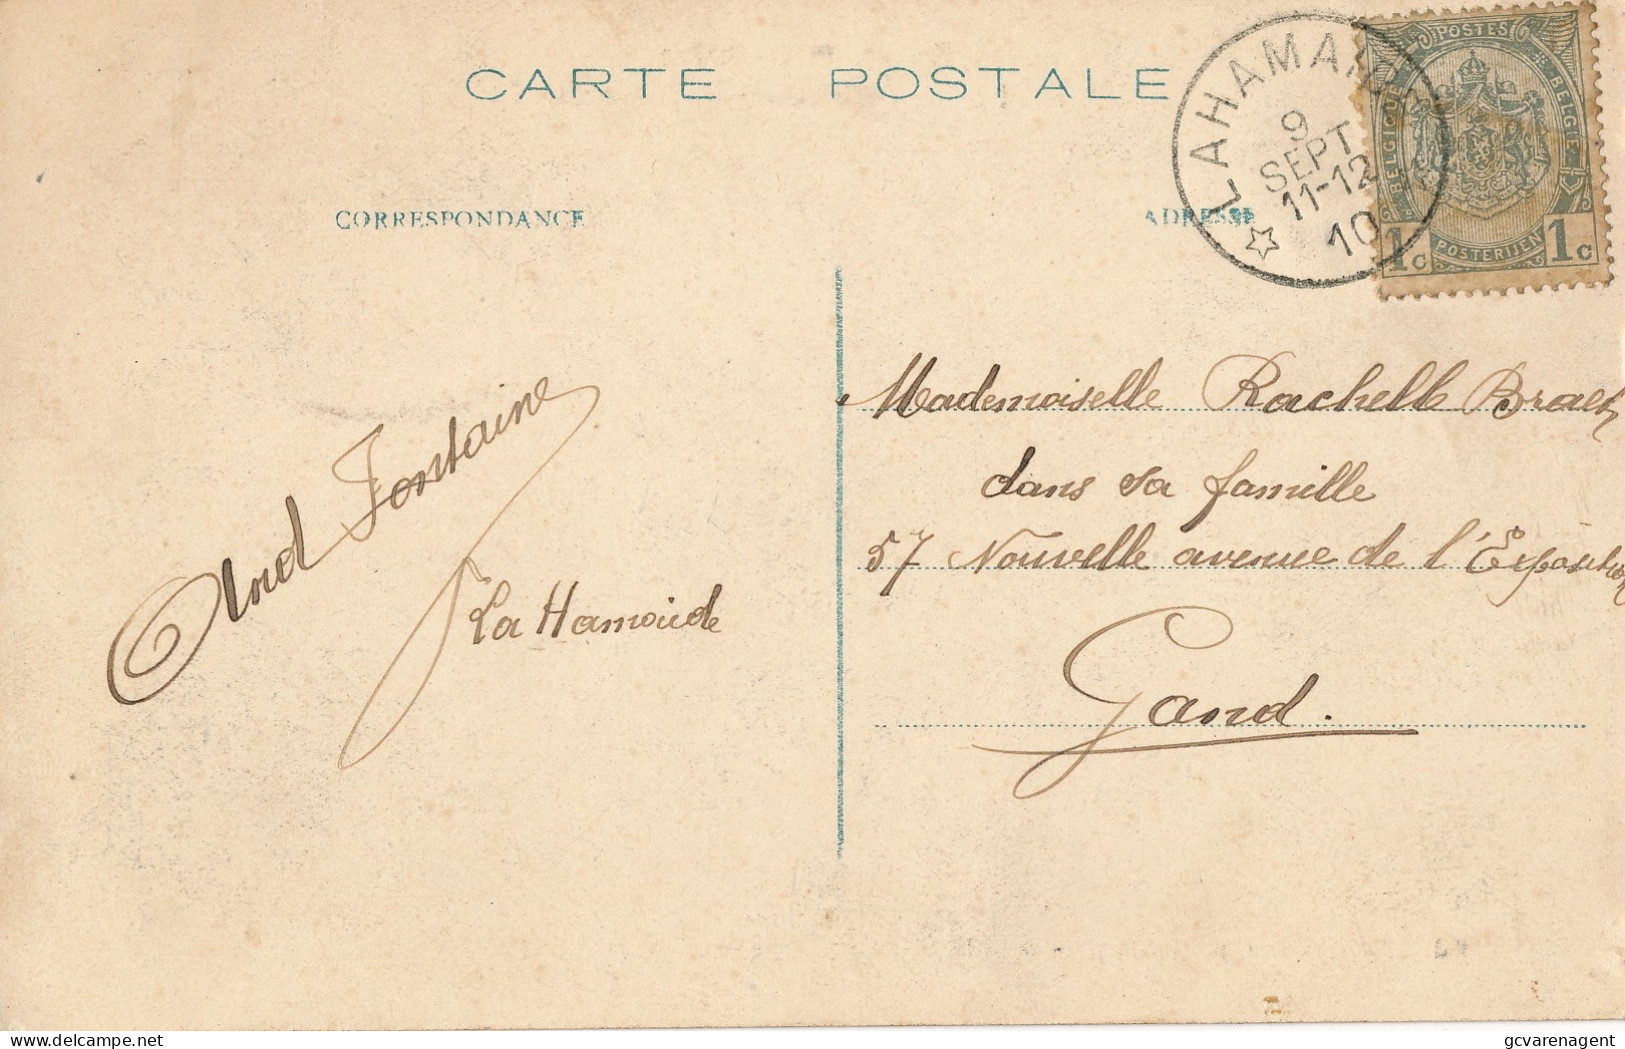 CARTE POSTALE
CORRESPONDANCE
ADRESSE
LAHAMAIDE
9
SEPT
11-12
10
POSTES
BELGIQUE
BELGIE
POSTERIJEN
1c 1c
And Fontaine
La Hamaide
Mademoiselle Rachelle
dans sa famille
57 Nouvelle avenue de l'Exposition
Gand.
delcampe.net
gcvarenagent